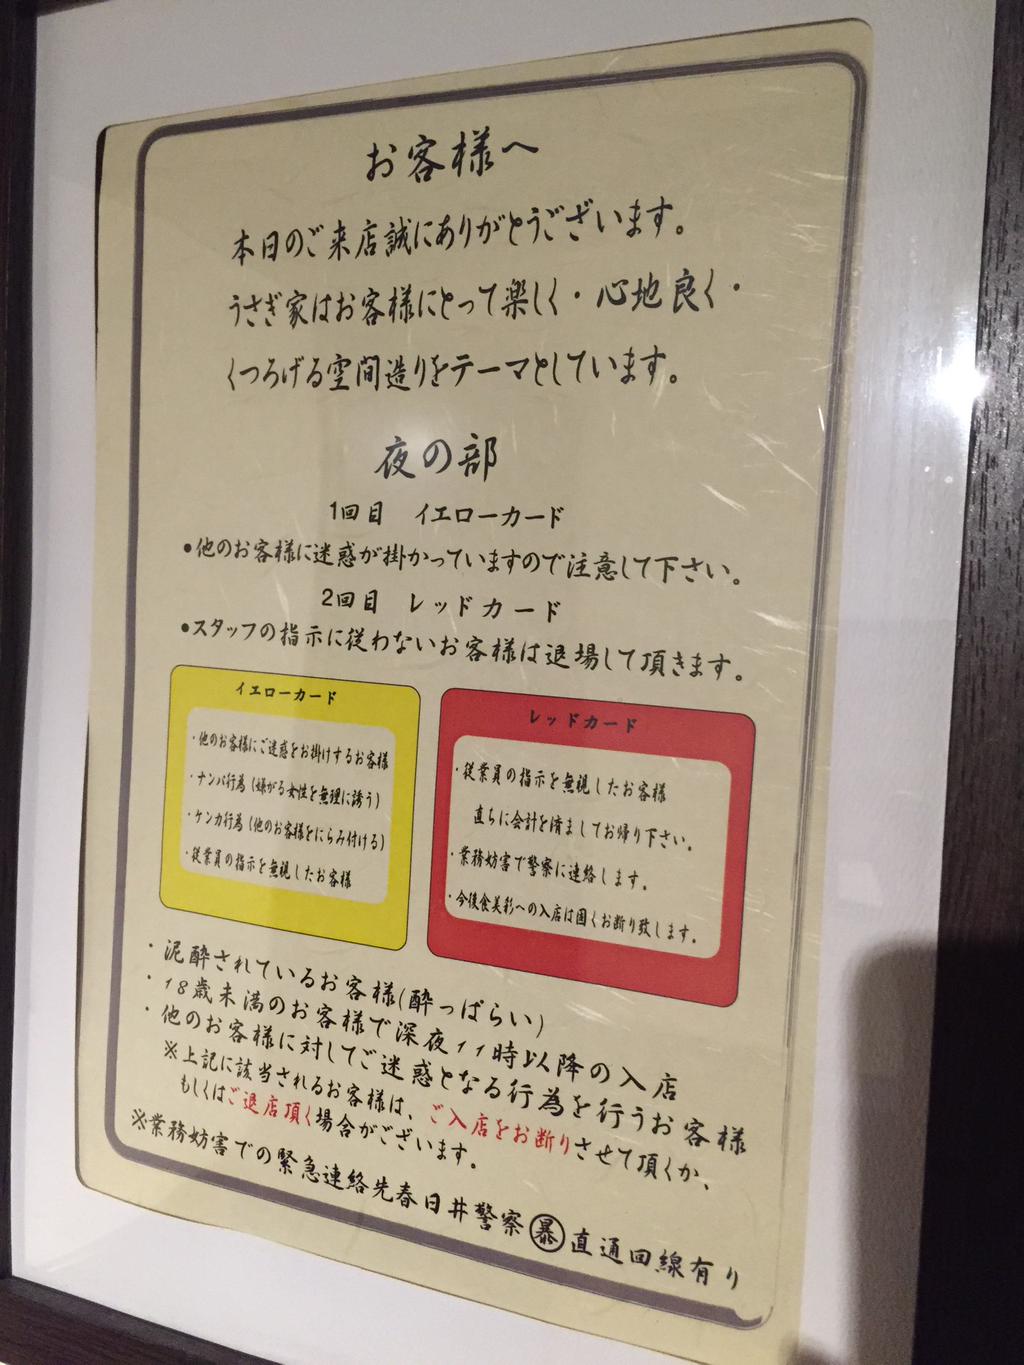 お客様へ
本日のご来店誠にありがとうございます。
うさぎ家はお客様にとって楽しく・心地良く・
くつろげる空間造りをテーマとしています。
夜の部
1回目　イエローカード
●他のお客様に迷惑が掛かっていますので注意して下さい。
2回目　レッドカード
●スタッフの指示に従わないお客様は退場して頂きます。
イエローカード
・他のお客様にご迷惑をお掛けするお客様
・ナンパ行為(嫌がる女性を無理に誘う)
・ケンカ行為(他のお客様をにらみ付ける)
・従業員の指示を無視したお客様
レッドカード
・従業員の指示を無視したお客様
直ちに会計を済ましてお帰り下さい。
・業務妨害で警察に連絡します。
・今後食美彩への入店は固くお断り致します。
・泥酔されているお客様(酔っぱらい)
・18歳未満のお客様で深夜11時以降の入店
・他のお客様に対してご迷惑となる行為を行うお客様
※上記に該当されるお客様は、ご入店をお断りさせて頂くか、
もしくはご退店頂く場合がございます。
※業務妨害での緊急連絡先春日井警察㊙直通回線有り